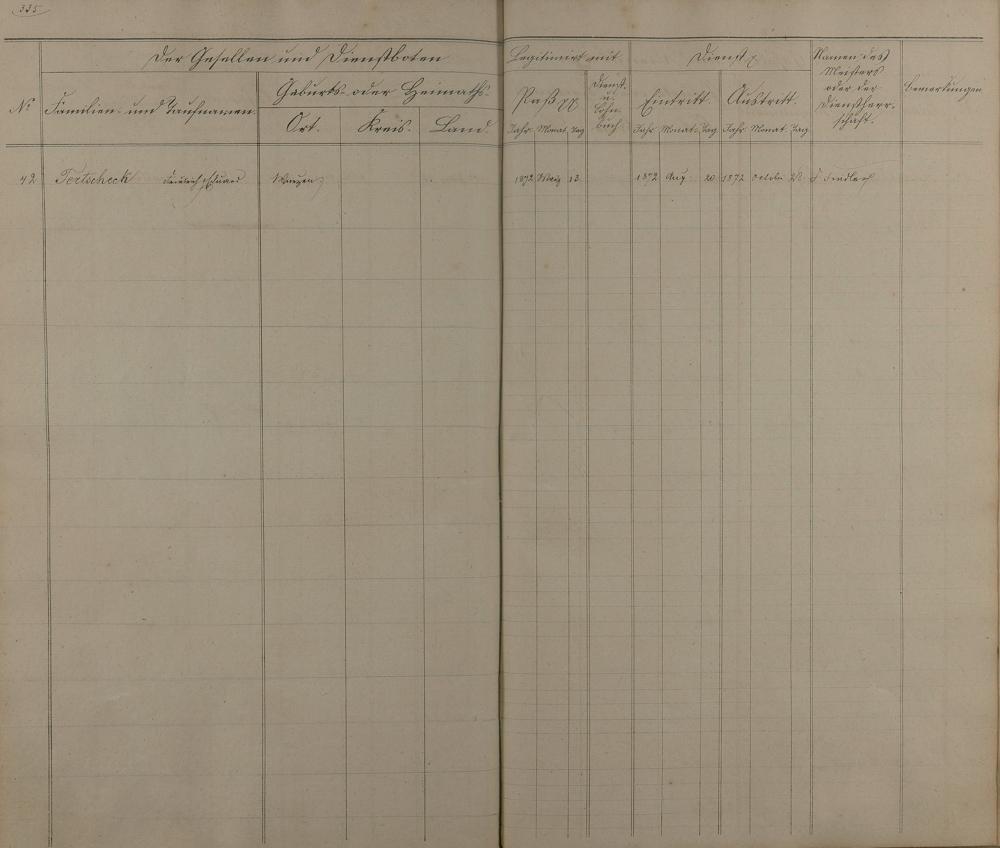 335.
Der Gesellen und Dienstboten
Legitimirt mit
Dienst
Namen des
Meisters
oder der
Dienstherr-
schaft.
Bemerkungen
No
Familien- und Taufnamen.
Geburts- oder Heimaths-
Ort. Kreis- Land.
Paß
Dienst-
u.
Lohn-
buch.
Eintritt. Austritt.
Jahr. Monat. Tag
Jahr. Monat. Tag Jahr. Monat. Tag
42 Tertscheck Eduard 1872 13 1872 Aug 20 1872 October